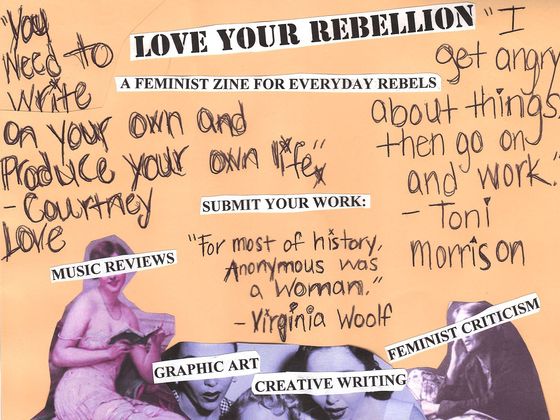 LOVE YOUR REBELLION
A FEMINIST ZINE FOR EVERYDAY REBELS
"You
Need to
Write
on your own and
Produce your own life"
- Courtney
Love
"I
get angry
about things,
then go on
and work."
- Toni
morrison
SUBMIT YOUR WORK:
"For most of history,
Anonymous was
a woman."
- Virginia Woolf
MUSIC REVIEWS
GRAPHIC ART
CREATIVE WRITING
FEMINIST CRITICISM